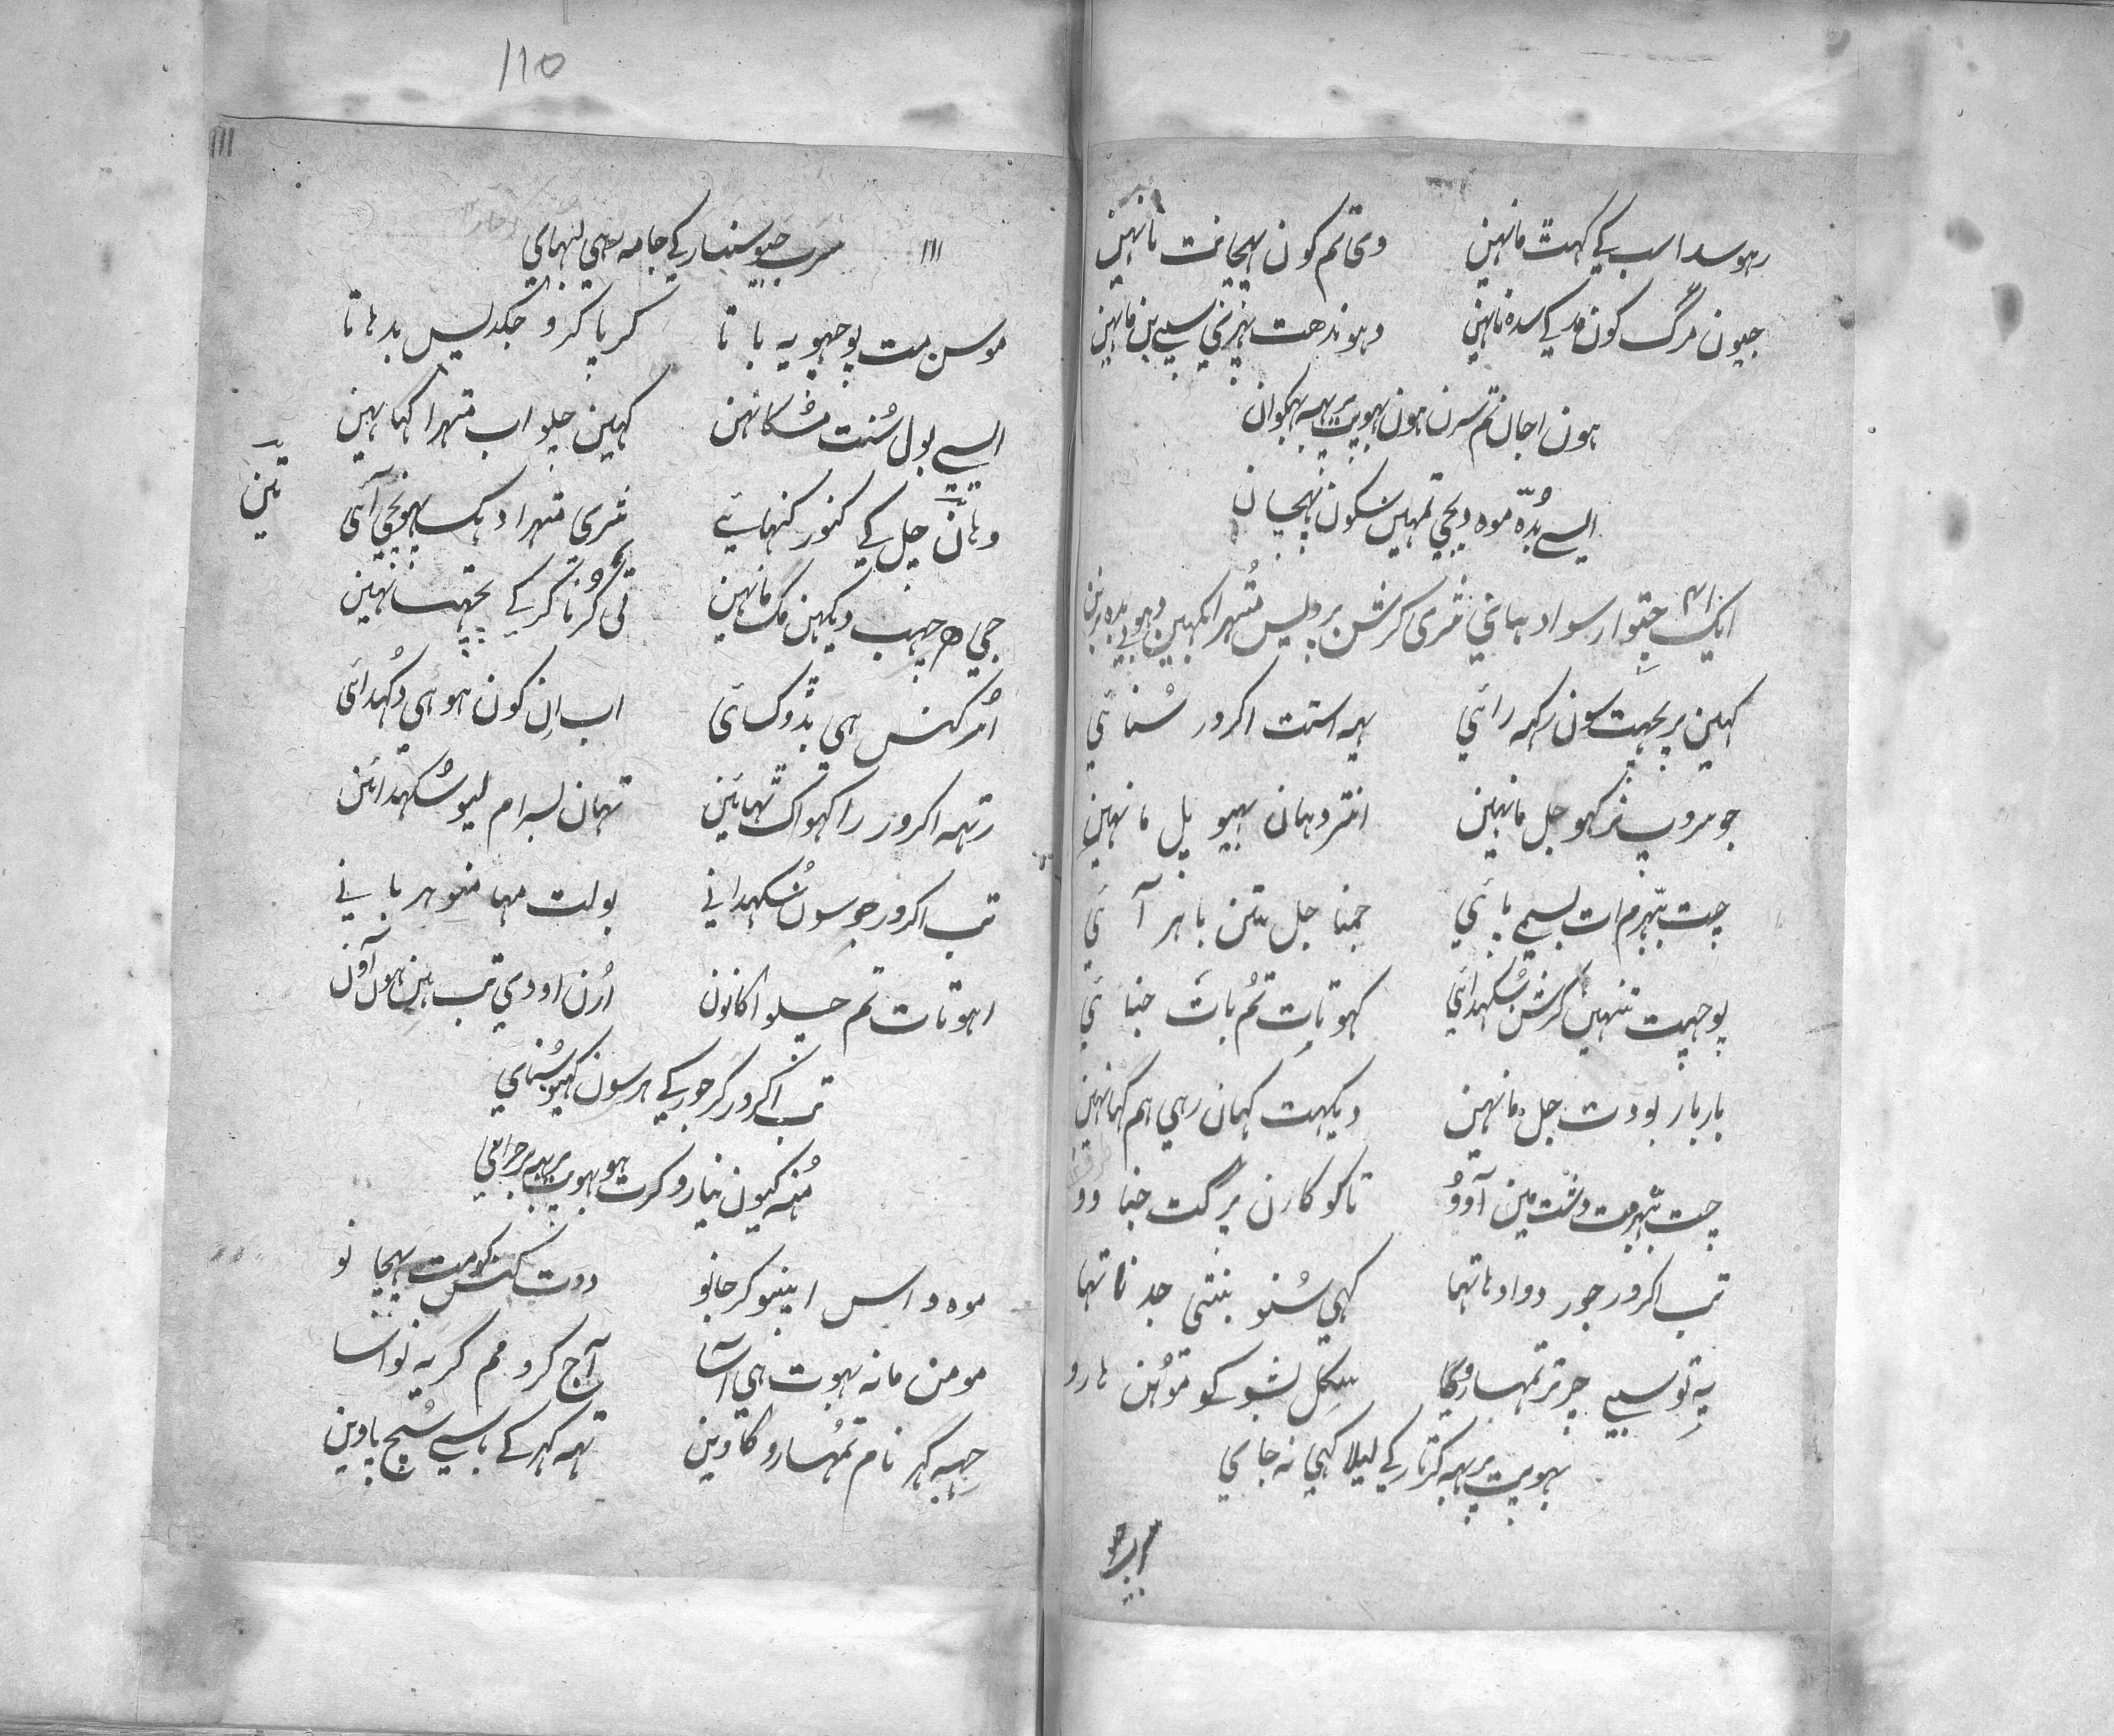 رہو سدا سب کے گہٹ مانہین وی تم کون پہچانت نانہین
جیون مرگ کون مد کے سدہ نانہین دہوندھت پہری بن مانہین
ہون اجان تم سرن ہون بہوپت پربہہ بہگوان
ایسے بُدّہ موہ دیجی تمہین سکون پہچان
ایک چتوارسواد ہیای شری کرشن پردیس مُتہرا کہین
کہین پریچہت سون رکہہ رائی یہہ استت اکرور سُنائی
جو سروپ نرکہو جل مانہین انتردہان بہیو پل مانہین
چت بہرم ات بسمے پائی جمنا جل تین باہر آئی
پوچہت تنہین کرشن سُکہدائی کہو تات تُم بات جنائی
بار بار بودت جل مانہین دیکہت کہان رہی ہم کہانہین
چت بہرمت دشت مین آوو تاکو کارن پرگت جناوو
تب اکرور جور دوادہاتہا کہی سُنو بنتی جدناتہا
یہ تو سبے چرتر تمہارو سکل بشو کو موہن ہارو
بہوپت پربہہ کرتار کے لیلا کہی نہ جای
110
111
۱۱۱ سرب جیو سنسار کے جامہ رہی لبہای
موسن مت پوچہو یہ باتا کرپا کرو جگدیس بدہاتا
ایسے بول سُنت مُسکانہن کہین چلو اب متہرا کہانہین
وہان چل کے کنور کنہائے شری متہرا دہک پہونچی آئی
تین
جی چہب دیکہن مگ مانہین تی گرتا کرکے پچہتانہین
امُر کنس ہی بڈو کسائی اب اِن کون ہوہی دُکہدائی
رتہہ اکرور راکہو اک ٹہائین تہان بسرام لیو سُکہدائین
تب اکرور جو سون سُکہدانی بولت مہا منوہر بانے
اہو تات تم چلو اکانون اُرن اودی تب ہین ہون آون
تب اکرور کر جور کے ہر سون کہیو سُنای
مُنہ کیون نیارو کرت ہو بہوپت پربہہ برجرای
موہ داس اپنو کر جانو دوت کنس کو مت پہچانو
مو من مانہ بہوت ہی آسا آج کرو مم گریہ نواسا
جہہ گہر نام تمُہارو گاوین تہہ گہر کے باسے سُچ پاوین